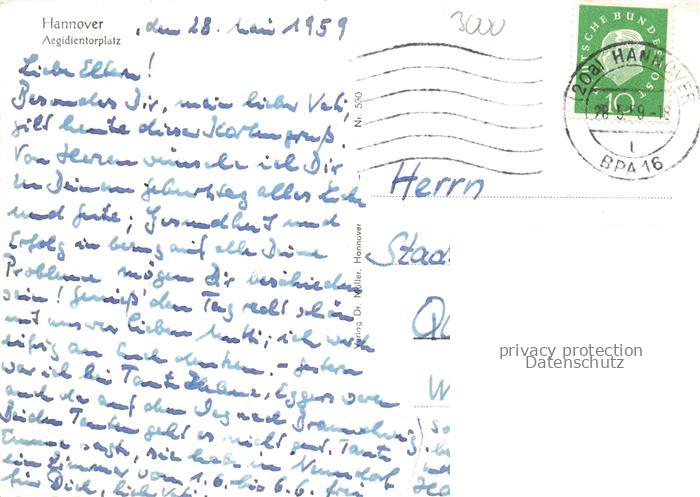 Hannover
Aegidientorplatz
, den 28. Mai 1959
3000
Liebe Eltern!
Besonders Dir, mein lieber Vati,
gilt heute dieser Kartengruß.
Von Herzen wünsche ich Dir
zu Deinem Geburtstag alles Liebe
und Gute; Gesundheit und
Erfolg in bezug auf alle Deine
Probleme mögen Dir beschieden
sein! Genieß' den Tag recht schön
mit unserer lieben Mutti; ich werde
eifrig an Euch denken. – Gestern
war ich bei Tante Eggers waren
auch da auf dem Weg nach Braunschweig
Beiden Tanten geht es nicht gut. Tante
Emma sagte, sie habe in Nenndorf
ein Zimmer vom 1.6. bis 6.6. frei
für Dich, lieb Vati.
Nr. 530
Verlag Dr. Müller, Hannover
DEUTSCHE BUNDESPOST
10
20a HANNOVER
28.5.59-18
BPA 16
Herrn
Stad
privacy protection
Datenschutz
W